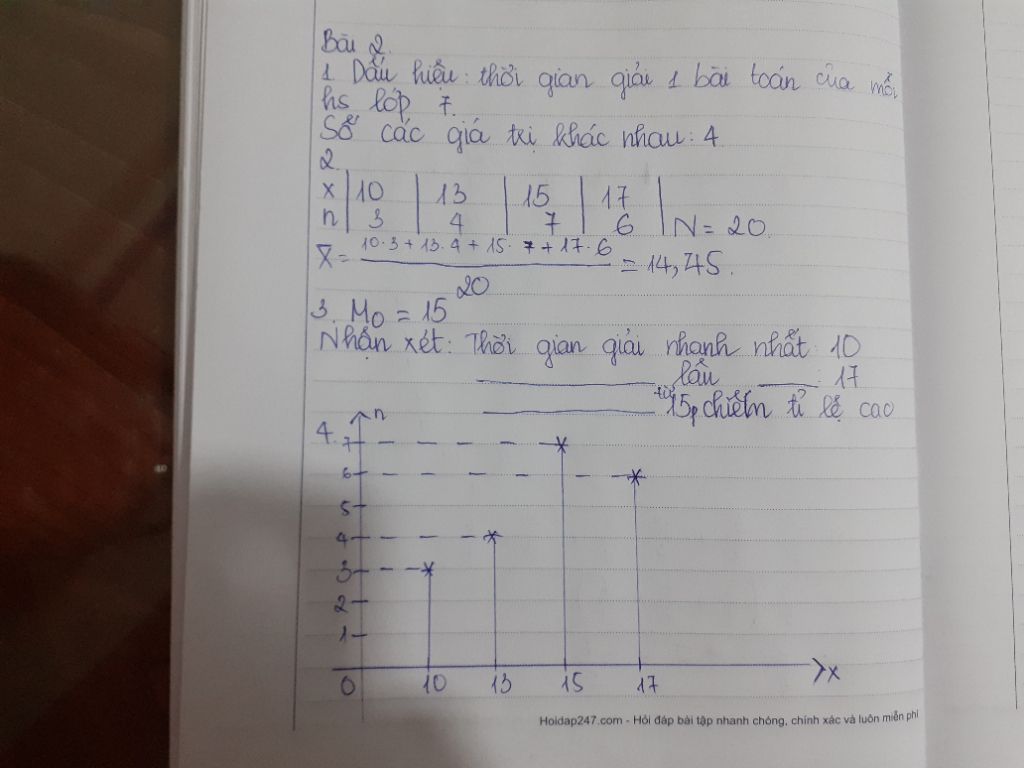 Bài 2.
1 Dấu hiệu: thời gian giải 1 bài toán của mỗi
hs lớp 7.
Số các giá trị khác nhau: 4
2.
x | 10 | 13 | 15 | 17 |
n | 3 | 4 | 7 | 6 | N = 20.
X̄ = 10·3 + 13·4 + 15·7 + 17·6 = 14,45.
20
3. M0 = 15
Nhận xét: Thời gian giải nhanh nhất: 10
lâu : 17
từ 15p chiếm tỉ lệ cao
4.
n
7
6
5
4
3
2
1
0 10 13 15 17 x
Hoidap247.com - Hỏi đáp bài tập nhanh chóng, chính xác và luôn miễn phí